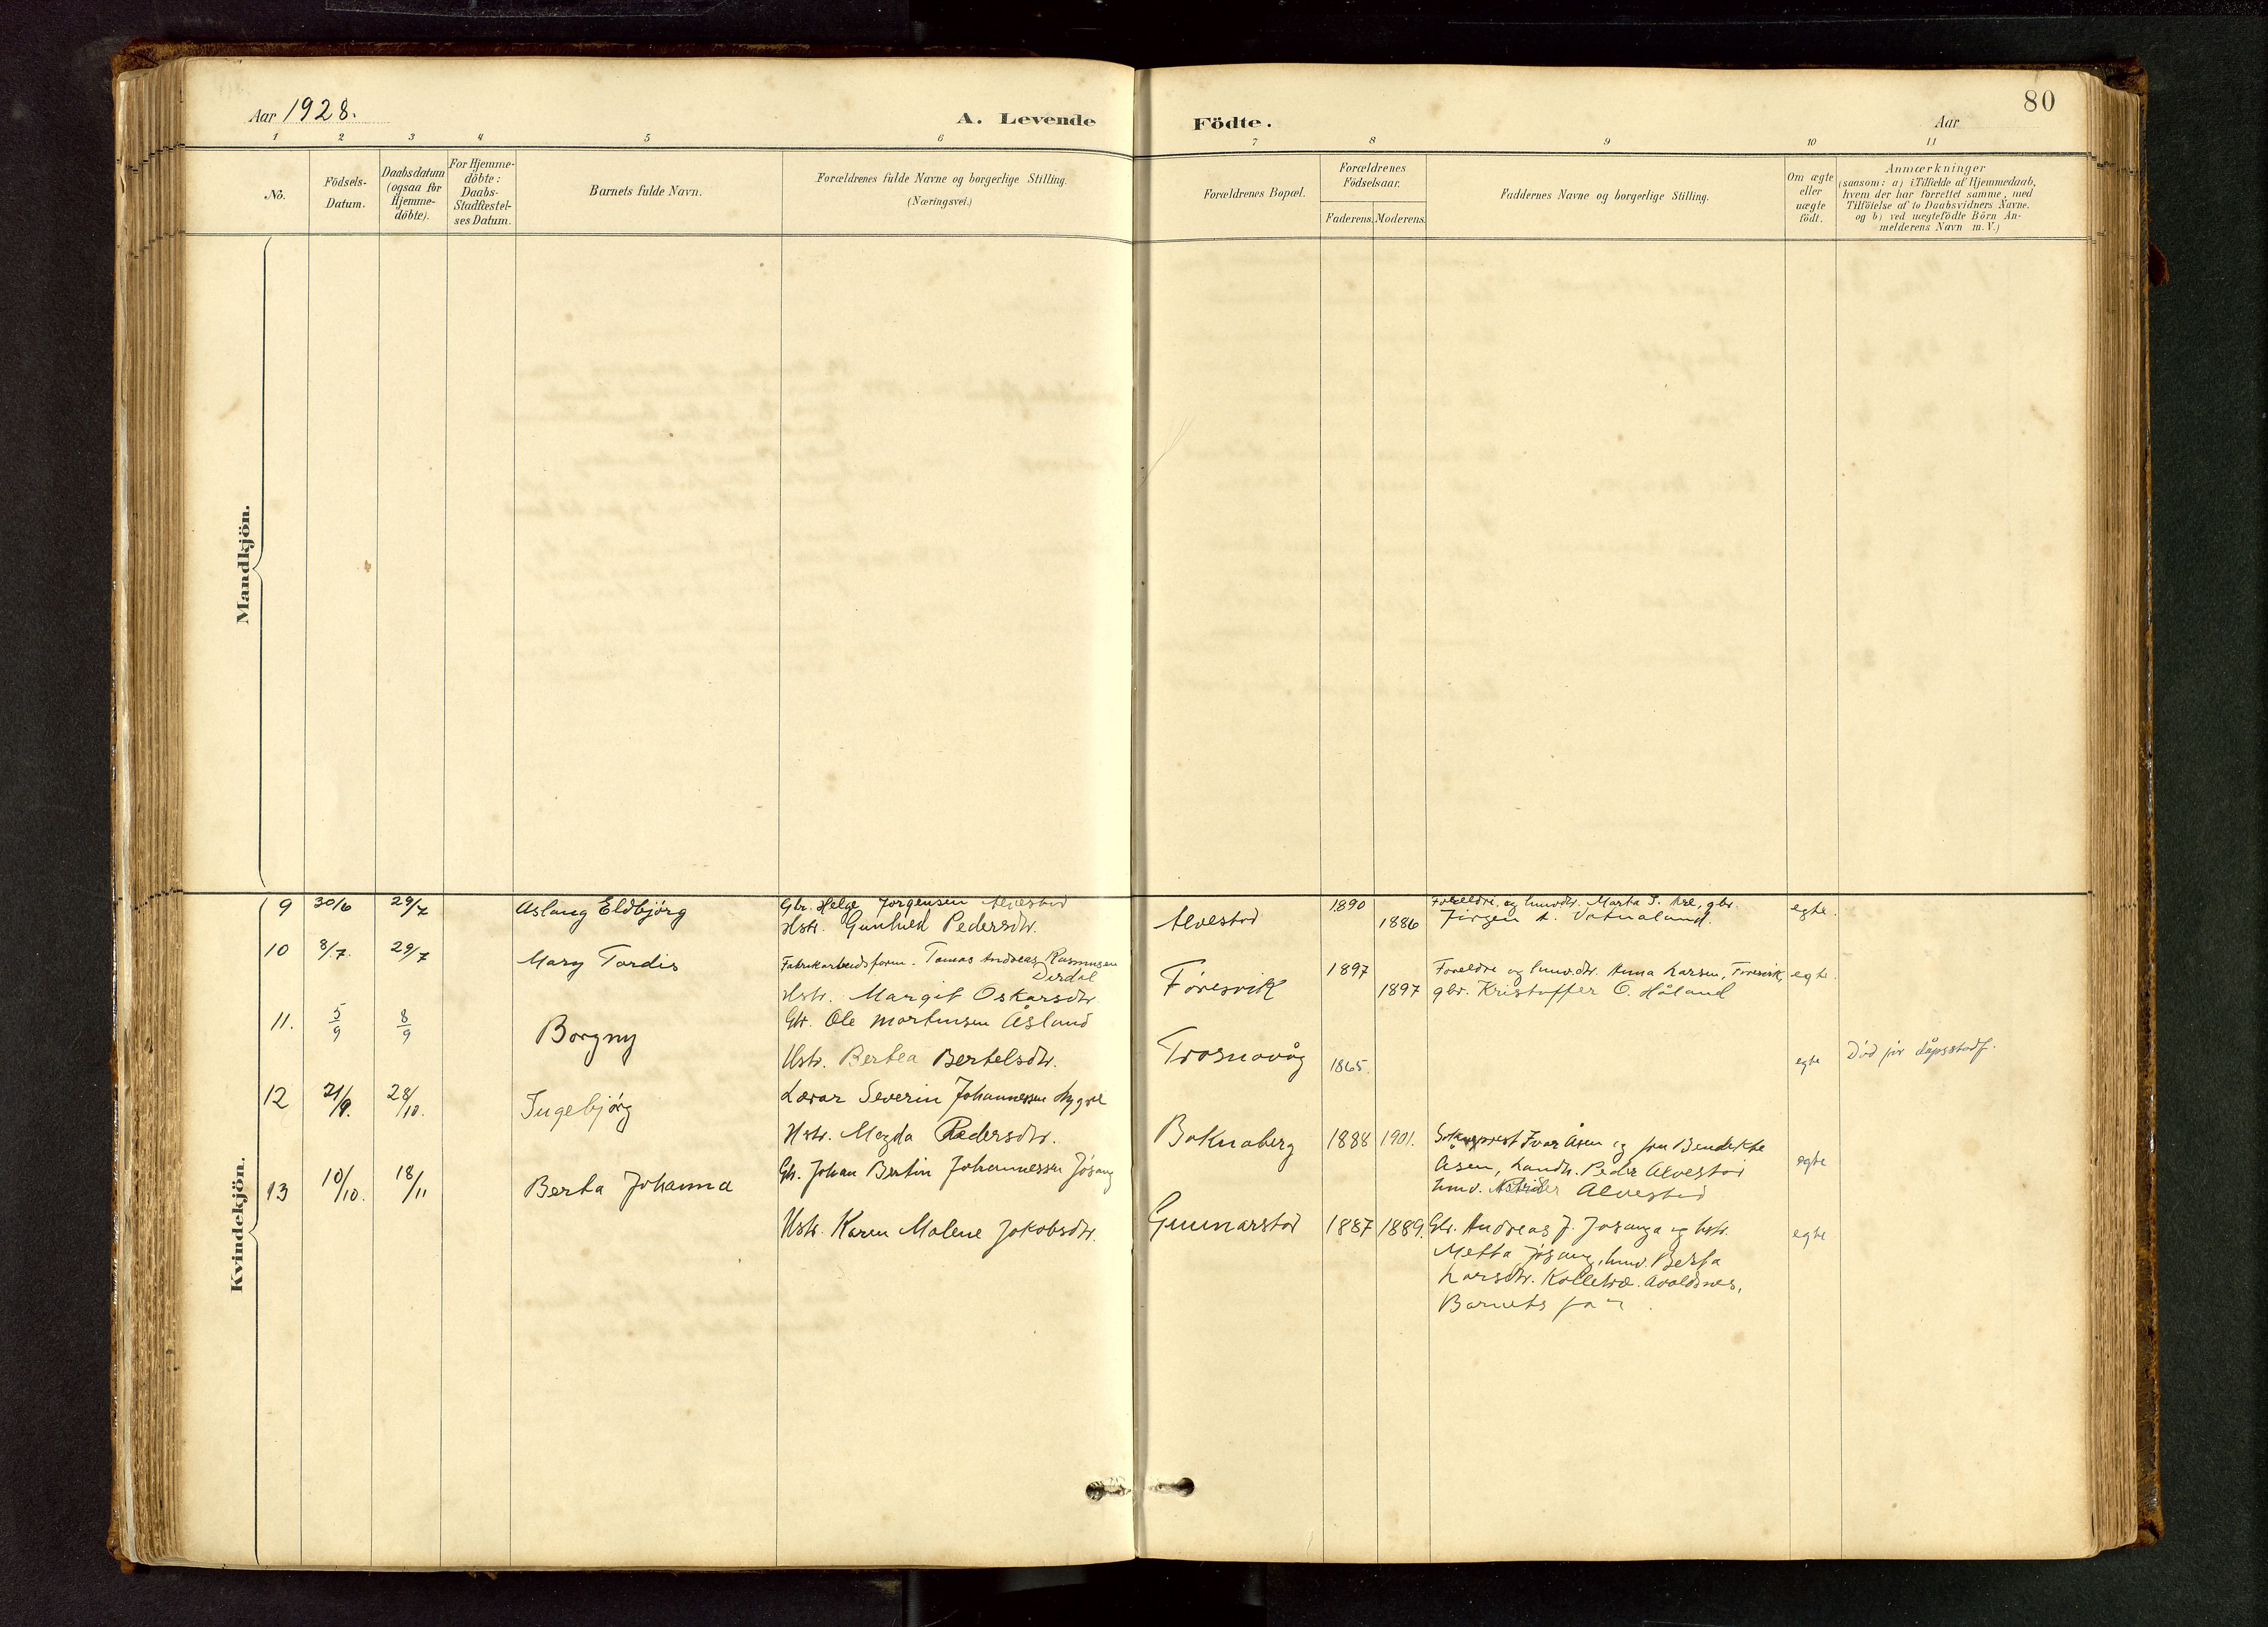 80
Aar 1928.
A. Levende Födte.
Aar
1 2 3 4 5 6 7 8 9 10 11
No.
Födsels-Datum.
Daabsdatum (ogsaa for Hjemme-döbte).
For Hjemme-döbte: Daabs-Stadfæstel-ses Datum.
Barnets fulde Navn.
Forældrenes fulde Navne og borgerlige Stilling.
(Næringsvei.)
Forældrenes Bopæl.
Forældrenes Födselsaar.
Faderens. Moderens.
Faddernes Navne og borgerlige Stilling.
Om ægte eller uægte födt.
Anmærkninger
(saasom: a) i Tilfælde af Hjemmedaab,
hvem der har forrettet samme, med
Tilföielse af to Daabsvidners Navne.
og b) ved uægtefödte Börn An-
melderens Navn m. V.)
Mandkjön.
Kvindekjön.
9 30/6 29/7 Aslaug Eldbjörg Gbr. Helge Jorgensen Alvestad
Hstr. Gunhild Pedersdtr. Alvestad 1890 1886 Foreldre og hmvdtr. Marta S. Are, gbr.
Jørgen A. Vatnaland. egte.
10 8/7. 29/7 Mary Tordis Fabrikarbeidsform. Tomas Andreas Rasmussen
Dirdal
Hstr. Margit Oskarsdtr. Føresvik 1897 1897 Foreldre og hmv.dtr. Anna Larsen, Føresvik,
gbr. Kristoffer O. Håland egte.
11. 5/9 8/9 Borgny Gbr. Ole Martinsen Åsland
Hstr. Bertea Bertelsdtr. Trosnavåg 1865. egte Død før dåpsstadf.
12 21/9. 28/10. Ingebjørg Lærar Severin Johannessen Hygre
Hstr. Magda Pedersdtr. Boknaberg 1888 1901. Sokneprest Ivar Åsen og fru Bendikte
Åsen, Landh. Peder Alvestad
hmv. Alvestad egte
13 10/10. 18/11 Berta Johanna Gbr. Johan Bertin Johannessen Jøsang
Hstr. Karen Malene Jakobsdtr. Gunnarstad 1887 1889. Gbr. Andreas J. Jøsang og hstr.
Metta Jøsang, hmv. Berta
Larsdtr. Kolletvæ. Avaldsnes,
Barnets far. egte